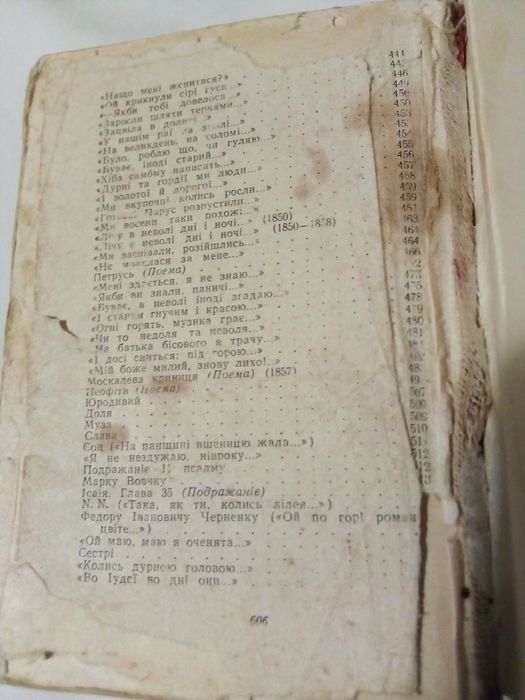 «Нащо мені женитися?» 441
«Ой крикнули сірі гуси 44
«—Якби тобі довелося 446
«Заросли шляхи тернами...» 449
«Зацвіла в долині 450
«У нашім раї на землі...» 450
«На великдень, на соломі...» 453
«Було, роблю що, чи гуляю...» 45
«Буває, іноді старий...» 454
«Хіба самому написать...» 455
«Дурні та гордії ми люди...» 456
«І золотої й дорогої...» 457
«Ми вкупочці колись росли...» 458
«Готово! Парус розпустили... 459
«Ми восени таки похожі...» 459
«Лічу в неволі дні і ночі..» (1850) 461
«Лічу в неволі дні і ночі...» (1850—1858) 463
«Ми заспівали, розійшлись...» 464
«Не молилася за мене...» 464
Петрусь (Поема) 466
«Мені здається, я не знаю...» 2
«Якби ви знали, паничі...» 473
«Буває, в неволі іноді згадаю...» 475
«І станом гнучим і красою...» 478
«Огні горять, музика грає...» 479
«Чи то недоля та неволя...» 480
«На батька бісового я трачу...» 481
«І досі сниться: під горою...» 48
«Мій боже милий, знову лихо!..» 48
Москалева криниця (Поема) (1857) 48
Неофіти (Поема) 49
Юродивий 507
Доля 508
Муза 509
Слава 510
Сон («На панщині пшеницю жала...») 51
«Я не нездужаю, нівроку...» 51
Подражаніє 11 псалму 12
Марку Вовчку 13
Ісаія. Глава 35 (Подражаніє)
N. N. («Така, як ти, колись лілея...»)
Федору Івановичу Черненку («Ой по горі роман
цвіте...»)
«Ой маю, маю я оченята...»
Сестрі
«Колись дурною головою...»
«Во Іудеї во дні они...»
606